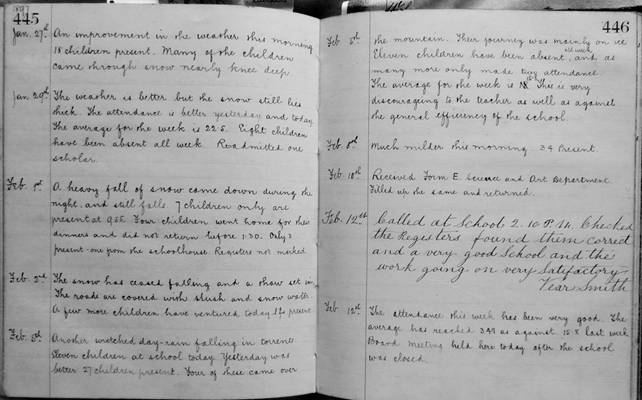 445
Jan. 27th An improvement in the weather this morning
18 children present. Many of the children
came through snow nearly knee deep
Jan 29th The weather is better but the snow still lies
thick. The attendance is better yesterday and today
The average for the week is 22.5. Eight children
have been absent all week. Readmitted one
scholar.
Feb. 1st A heavy fall of snow came down during the
night, and still falls 7 children only are
present at 9.55. Four children went home for their
dinners and did not return before 1.30. Only 3
present - one from the schoolhouse. Registers not marked
Feb. 2nd The snow has ceased falling and a thaw set in
The roads are covered with slush and snow water
A few more children have ventured today 17 present
Feb. 5th Another wretched day - rain falling in torrents
Eleven children at school today. Yesterday was
better 27 children present. Four of these came over
446
Feb. 5th the mountain. Their journey was mainly on ice
Eleven children have been absent all week, and as
many more only made two attendances
The average for the week is 15.8 This is very
discouraging to the teacher as well as against
the general efficiency of the school.
Feb. 8th Much milder this morning. 34 Present.
Feb. 10th Received Form E. Science and Art Department
Filled up the same and returned.
Feb. 12th Called at School 2.10 P.M. Checked
the Registers found them correct
and a very good School and the
work going on very Satisfactory
Smith
Feb. 12th The attendance this week has been very good. The
average has reached as against 15.8 last week
Board Meeting held here today after the school
was closed.